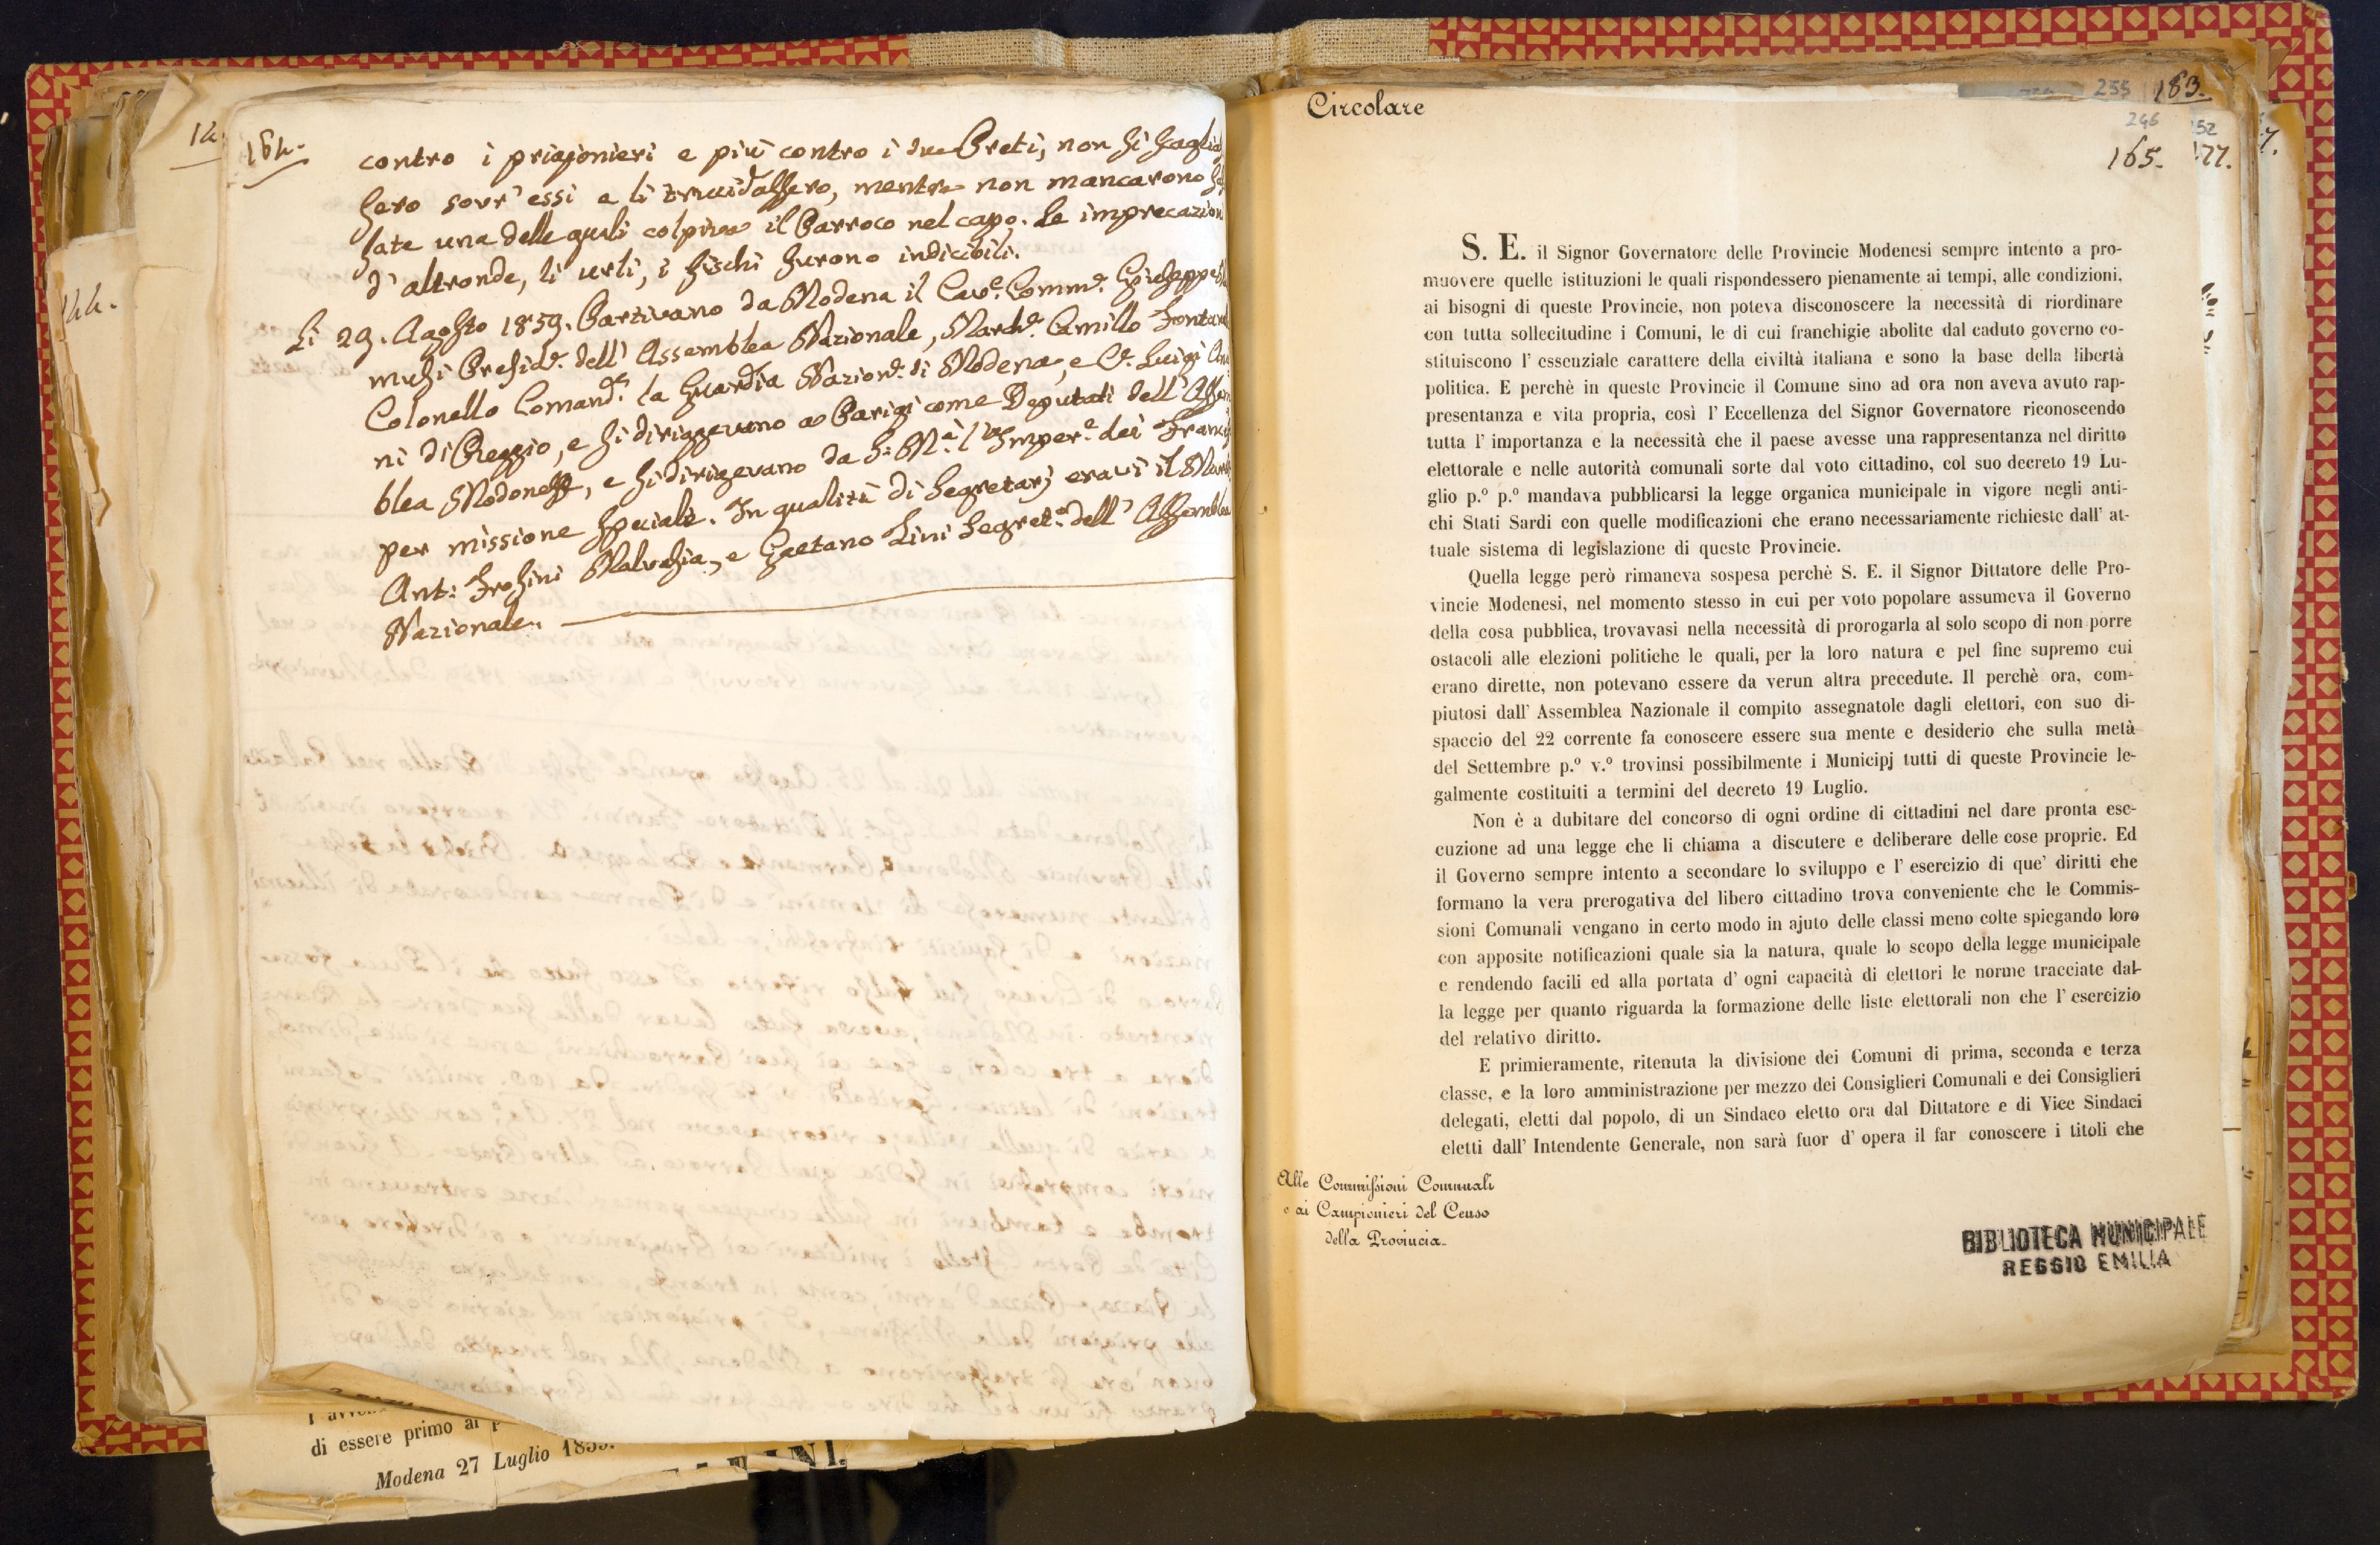 164.
contro i prigionieri e più contro i due Preti, non si saglias
sero sovr' essi e li trucidassero, mentre non mancarono
sate una delle quali colpiva il Parroco nel capo. Le imprecazion
d' altronde, li urli, i fischi furono indicibili.
Li 29. Agosto 1859. Partivano da Modena il Cav.e Comm.e Giuseppe
Presid.e dell' Assemblea Nazionale, March.e Camillo Fontanel
Colonello Comand.e la Guardia Nazion.e di Modena, e C.e Luigi
ni di Reggio, e si diriggevano a Parigi come Deputati dell' Assem
blea Modonese, e si dirigevano da S. M.a l' Imper.e dei Francesi
per missione speciale. In qualità di Segretarj eravi il March
Ant: Frosini Malvezia, e Gaetano Lini Segret.o dell' Assemblea
Nazionale.
144.
di essere primo al p
Modena 27 Luglio 1859.
Circolare
255 183.
246
165.
52
177.
7.
S. E. il Signor Governatore delle Provincie Modenesi sempre intento a pro-
muovere quelle istituzioni le quali rispondessero pienamente ai tempi, alle condizioni,
ai bisogni di queste Provincie, non poteva disconoscere la necessità di riordinare
con tutta sollecitudine i Comuni, le di cui franchigie abolite dal caduto governo co-
stituiscono l' essenziale carattere della civiltà italiana e sono la base della libertà
politica. E perchè in queste Provincie il Comune sino ad ora non aveva avuto rap-
presentanza e vita propria, così l' Eccellenza del Signor Governatore riconoscendo
tutta l' importanza e la necessità che il paese avesse una rappresentanza nel diritto
elettorale e nelle autorità comunali sorte dal voto cittadino, col suo decreto 19 Lu-
glio p.º p.º mandava pubblicarsi la legge organica municipale in vigore negli anti-
chi Stati Sardi con quelle modificazioni che erano necessariamente richieste dall' at-
tuale sistema di legislazione di queste Provincie.
Quella legge però rimaneva sospesa perchè S. E. il Signor Dittatore delle Pro-
vincie Modenesi, nel momento stesso in cui per voto popolare assumeva il Governo
della cosa pubblica, trovavasi nella necessità di prorogarla al solo scopo di non porre
ostacoli alle elezioni politiche le quali, per la loro natura e pel fine supremo cui
erano dirette, non potevano essere da verun altra precedute. Il perchè ora, com-
piutosi dall' Assemblea Nazionale il compito assegnatole dagli elettori, con suo di-
spaccio del 22 corrente fa conoscere essere sua mente e desiderio che sulla metà
del Settembre p.º v.º trovinsi possibilmente i Municipj tutti di queste Provincie le-
galmente costituiti a termini del decreto 19 Luglio.
Non è a dubitare del concorso di ogni ordine di cittadini nel dare pronta ese-
cuzione ad una legge che li chiama a discutere e deliberare delle cose proprie. Ed
il Governo sempre intento a secondare lo sviluppo e l' esercizio di que' diritti che
formano la vera prerogativa del libero cittadino trova conveniente che le Commis-
sioni Comunali vengano in certo modo in ajuto delle classi meno colte spiegando loro
con apposite notificazioni quale sia la natura, quale lo scopo della legge municipale
e rendendo facili ed alla portata d' ogni capacità di elettori le norme tracciate dal-
la legge per quanto riguarda la formazione delle liste elettorali non che l' esercizio
del relativo diritto.
E primieramente, ritenuta la divisione dei Comuni di prima, seconda e terza
classe, e la loro amministrazione per mezzo dei Consiglieri Comunali e dei Consiglieri
delegati, eletti dal popolo, di un Sindaco eletto ora dal Dittatore e di Vice Sindaci
eletti dall' Intendente Generale, non sarà fuor d' opera il far conoscere i titoli che
Alle Commissioni Comunali
e ai Campionieri del Censo
della Provincia
BIBLIOTECA MUNICIPALE
REGGIO EMILIA